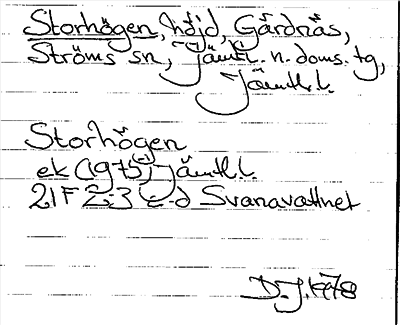 Storhögen, höjd, Gärdnäs,
Ströms sn, Jämtl. n. doms. tg,
Jämtl. l.
Storhögen
ek (1975) Jämtl. l.
21F 2-3 c-d Svanavattnet
D. J. 1978